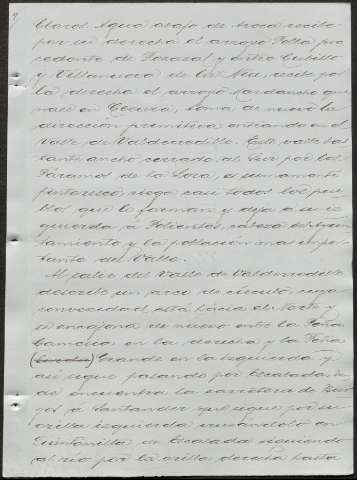 9
Claros. Agua abajo de Aroca recibe
por su derecha el arroyo Polla pro
cedente de Paracal y entre Cubillo
y Villanueva de la Nía, recibe por
la derecha el arroyo Mardancho que
nace en Cezura, toma de nuevo la
dirección primitiva entrando en el
Valle de Valderredible. Este valle bas
tante ancho cerrado al Sur por los
Páramos de la Lora, es sumamente
pintoresco, riega casi todos los pue
blos que lo forman y deja a su iz
quierda a Polientes, cabeza del Ayun
tamiento y la población más impor
tante del Valle.
Al salir del Valle de Valderredible
describe un arco de círculo cuya
convexidad está hacia el Norte y
se encajona de nuevo entre la Peña
Camesía en la derecha y la Peña
Grande en la izquierda y
así sigue pasando por Escalada don
de encuentra la carretera de Bur
gos a Santander que sigue por su
orilla izquierda uniéndolo en
Quintanilla de Escalada siguiendo
el río por la orilla derecha hasta